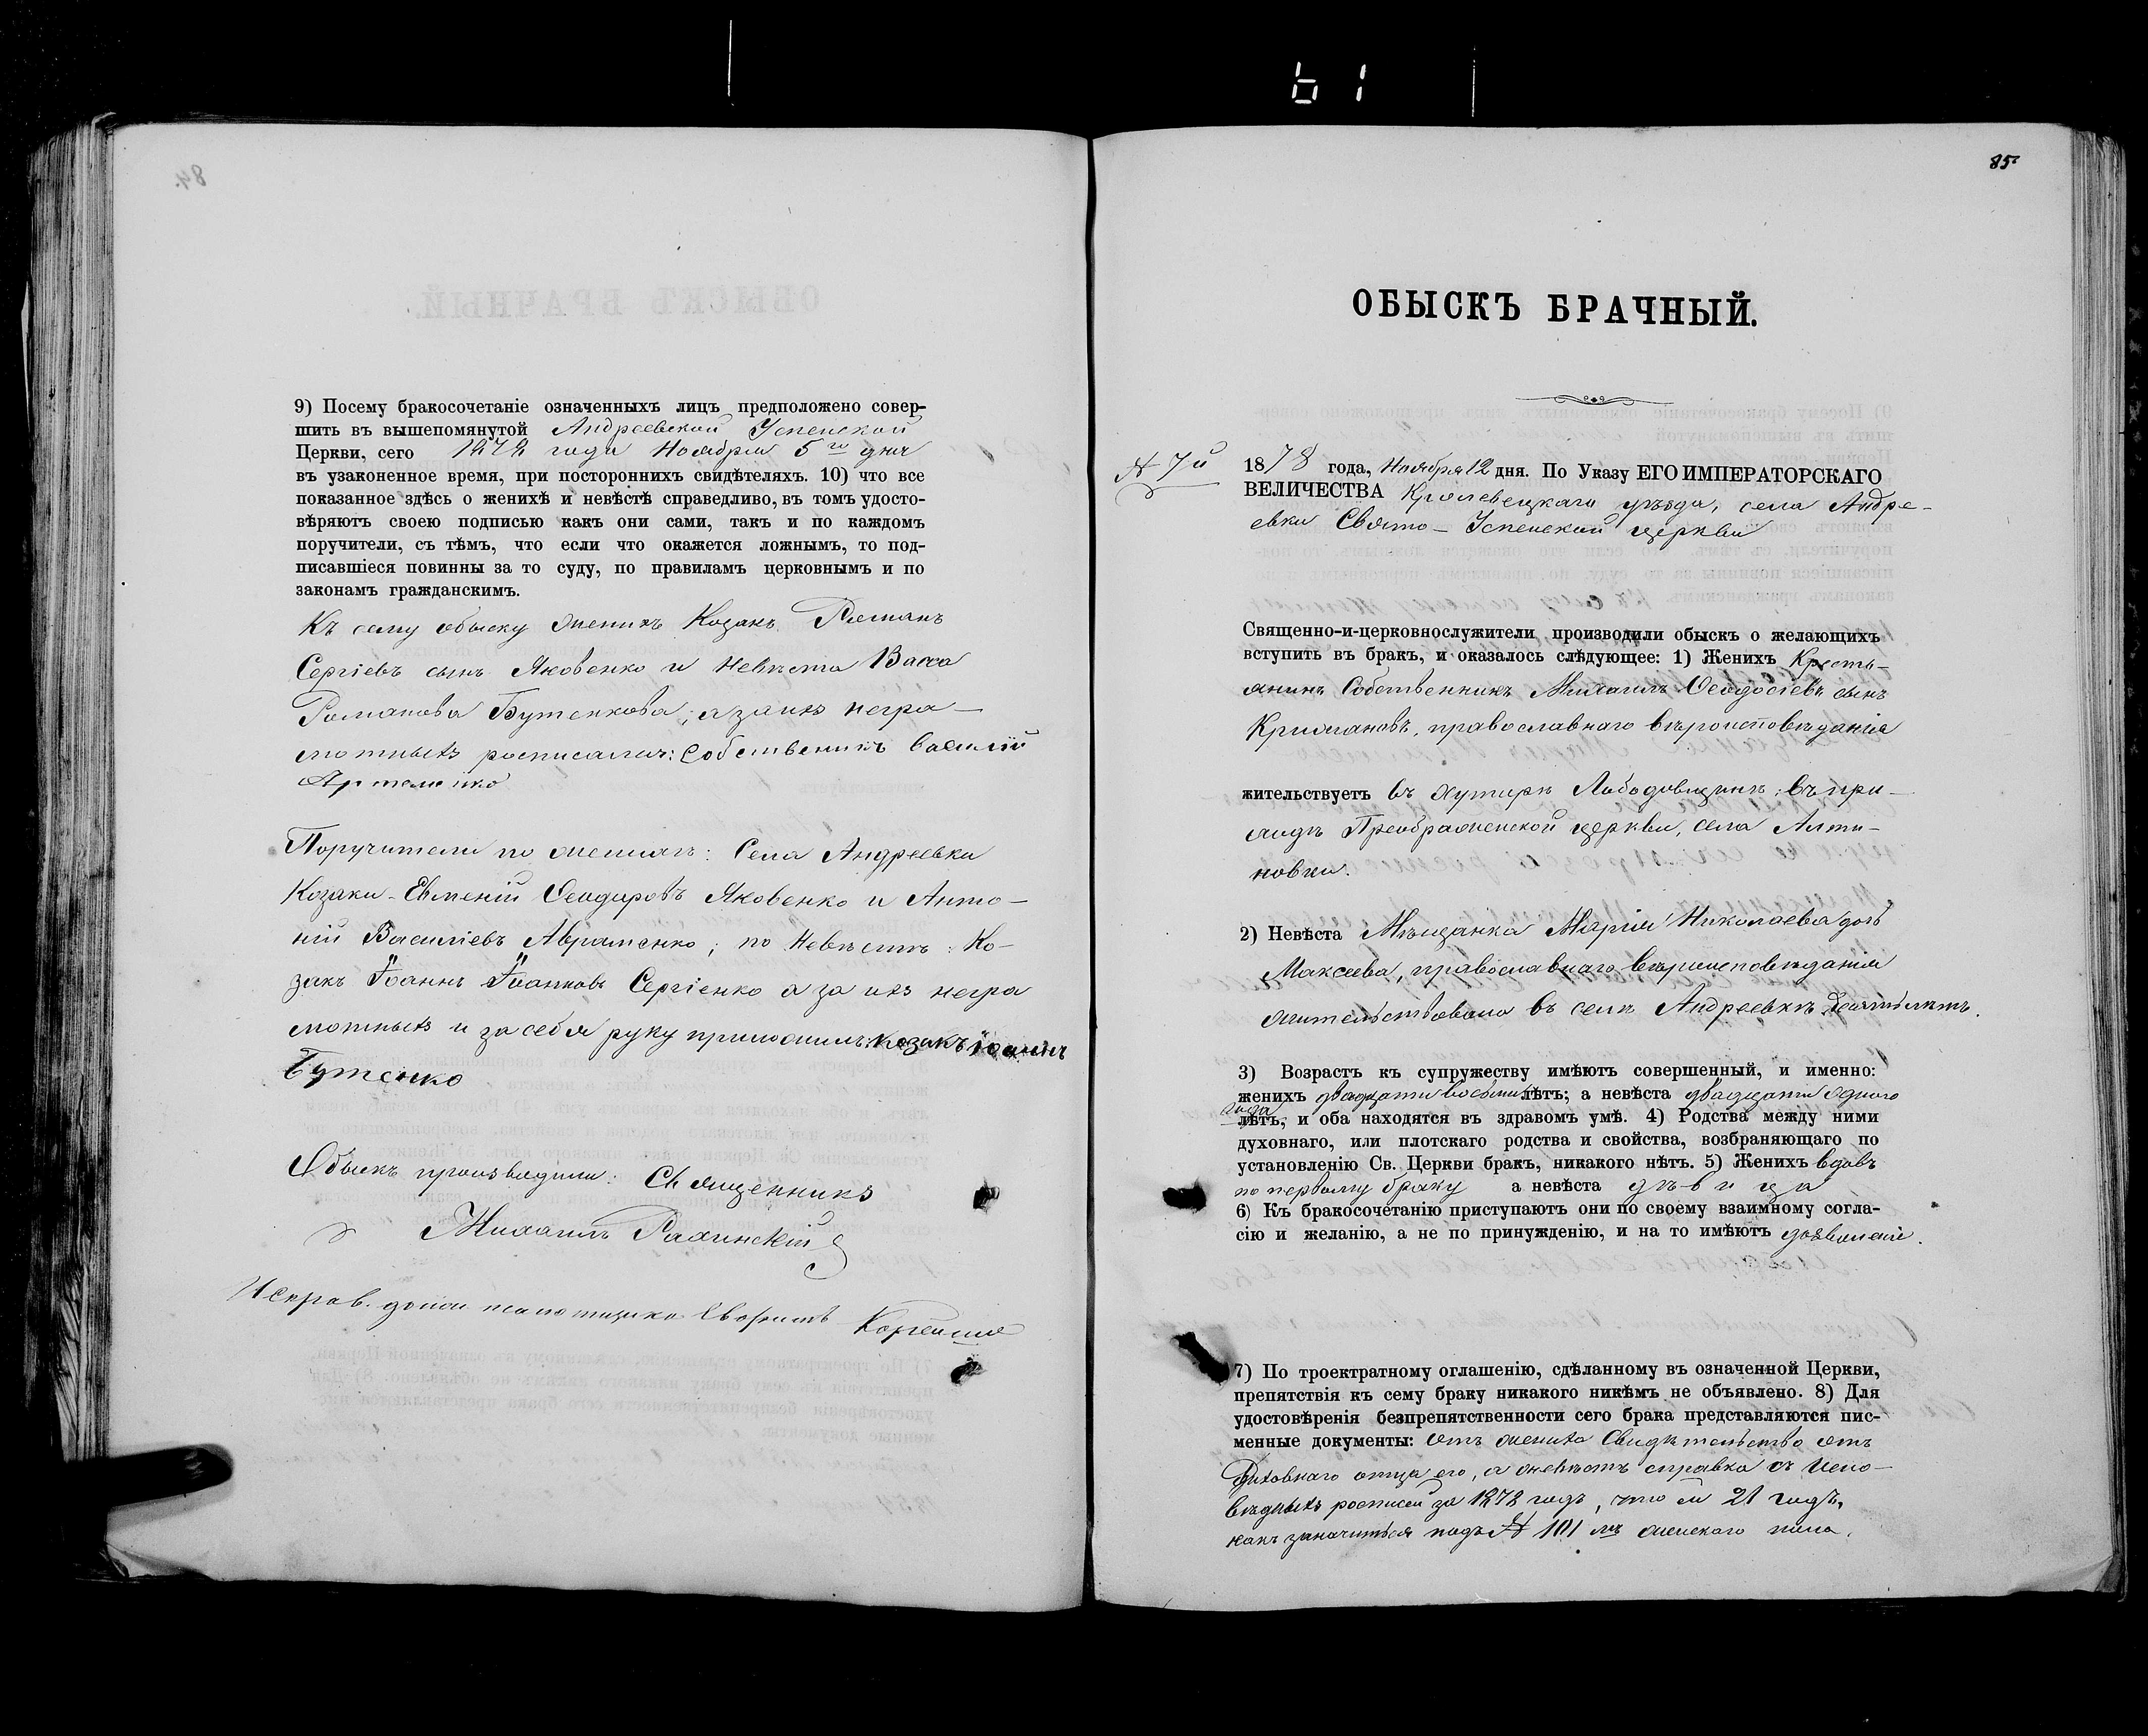 61
84.
9) Посему бракосочетаніе означенныхъ лицъ предположено совер-
шить въ вышепомянутой Андреевской Успенской
Церкви, сего 1878 года Ноября 5го дня
въ узаконенное время, при постороннихъ свидѣтеляхъ. 10) что все
показанное здѣсь о женихѣ и невѣстѣ справедливо, въ томъ удосто-
вѣряютъ своею подписью какъ они сами, такъ и по каждомъ
поручители, съ тѣмъ, что если что окажется ложнымъ, то под-
писавшіеся повинны за то суду, по правиламъ церковнымъ и по
законамъ гражданскимъ.
Къ сему обыску женихъ Козакъ Романъ
Сергіевъ сынъ Яковенко и невѣста Васса
Романова Бутенкова, а за ихъ негра-
мотныхъ росписался: собственикъ Василій
Артеменко
Поручители по женихѣ: Села Андреевки
Козаки Евменій Ѳеодоровъ Яковенко и Анто-
ній Василіевъ Авраменко; по невѣстѣ: Ко-
закъ Іоаннъ Іоанновъ Сергіенко а за ихъ негра
мотныхъ и за себя руку приложилъ: козакъ Іоаннъ
Бутенко
Обыскъ производили: Священникъ
Михаилъ
85.
ОБЫСКЪ БРАЧНЫЙ.
№ 7й
1878 года, Ноября 12 дня. По Указу ЕГО ИМПЕРАТОРСКАГО
ВЕЛИЧЕСТВА Кролевецкаго уѣзда, села Андре-
евки Свято-Успенской церкви
Священно-и-церковнослужители производили обыскъ о желающихъ
вступить въ бракъ, и оказалось слѣдующее: 1) Женихъ Кресть-
янинъ Собственникъ Михаилъ Ѳеодосіевъ сынъ
православнаго вѣроисповѣданія
жительствуетъ въ хуторѣ Лободовщинѣ, въ при-
ходѣ Преображенской церкви, села Алти-
новки.
2) Невѣста Мѣщанка Марія Николаева дочь
Максеева, православнаго вѣроисповѣданія
жительствовала въ селѣ Андреевкѣ
3) Возрастъ къ супружеству имѣютъ совершенный, и именно:
женихъ двадцати восьми лѣтъ; а невѣста двадцати одного
года
лѣтъ, и оба находятся въ здравомъ умѣ. 4) Родства между ними
духовнаго, или плотскаго родства и свойства, возбраняющаго по
установленію Св. Церкви бракъ, никакого нѣтъ. 5) Женихъ вдовъ
по первому браку а невѣста дѣвица
6) Къ бракосочетанію приступаютъ они по своему взаимному согла-
сію и желанію, а не по принужденію, и на то имѣютъ дозволеніе.
7) По троектратному оглашенію, сдѣланному въ означенной Церкви,
препятствія къ сему браку никакого никѣмъ не объявлено. 8) Для
удостовѣренія безпрепятственности сего брака представляются пис-
менные документы: отъ жениха Свидѣтельство отъ
Духовнаго отца его, о невѣстѣ справка съ Испо-
вѣдныхъ росписей за 1878 годъ, что ей 21 годъ,
какъ значится подъ № 101мъ женскаго пола.